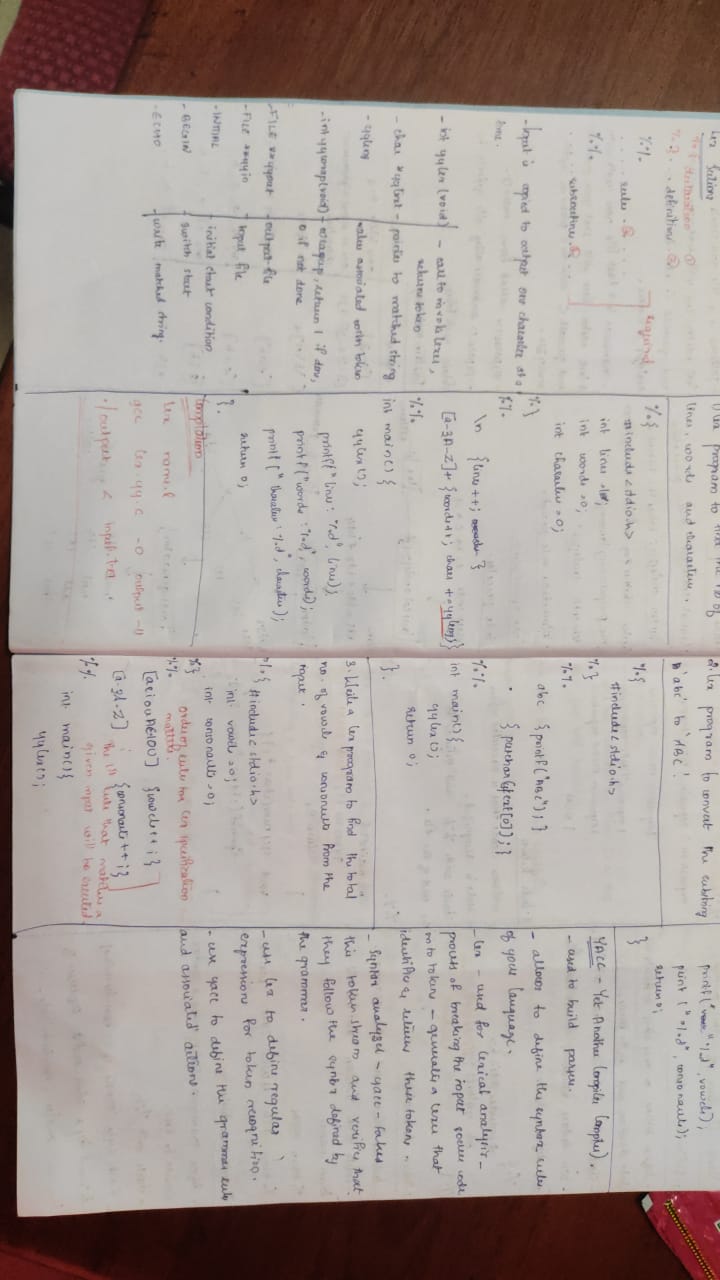 Lex Sections
%{ declaration ①
%} .. definition ②.
%%.
.. rules .
required.
%%.
subroutines.
- Input is copied to output one character at a
time.
- int yylex(void) - call to invoke lexer,
returns token
- char *yytext - pointer to matched string
- yyleng
value associated with token
- int yywrap(void) - wrapup, return 1 if done,
0 if not done
- FILE *yyout - output file
- FILE *yyin - Input file
- INITIAL - initial start condition
- BEGIN - switch start
- ECHO - write matched string.
1) Lex program to find the no of
lines, words and characters.
%{
#include<stdio.h>
int lines =0;
int words =0;
int character =0;
%}
%%.
\n {lines++; }
[a-zA-Z]+ {words++; chars +=yyleng}
%%
int main() {
yylex();
printf(" lines : %d", lines)
printf("words : %d", words);
printf (" character : %d", character);
return 0;
}.
Compilation
lex
gcc lex.yy.c -o output -ll
./output < input.txt
2. Lex program to convert the substring
'abc' to 'ABC'.
%{
#include<stdio.h>
%}
%%.
abc {printf("ABC");}
. {putchar(yytext[0]);}
%%
int main() {
yylex();
return 0;
}.
3. Write a lex program to find the total
no. of vowels & consonants from the
input.
%{ #include<stdio.h>
int vowel =0;
int consonants =0;
%}
ordering rule for lex specification
matters.
%%.
[aeiouAEIOU] {vowels++;}
[a-zA-Z] {consonants++;}
the 1st rule that matches a
given input will be executed
%%
int main() {
yylex();
printf(" %d", vowels);
print (" %d", consonants);
return 0;
}
YACC - Yet Another Compiler Compiler.
- used to build parser.
- allows to define the syntax rules
of your language.
- lex - used for lexical analysis -
process of breaking the input source code
into tokens - generates a lexer that
identifies & returns these tokens.
- Syntax analyser - yacc - takes
this token stream and verifies that
they follow the syntax defined by
the grammar.
- use lex to define regular
expressions for token recognition.
- use yacc to define the grammar rule
and associated actions.